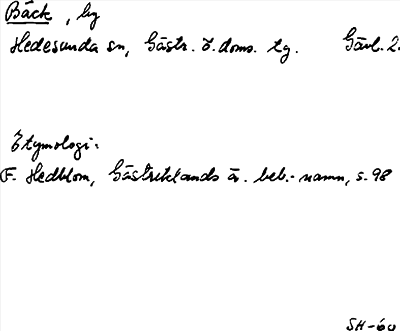 Bäck, by
Hedesunda sn, Gästr. ö. doms. tg. Gävl. l.
Etymologi:
F. Hedblom, Gästriklands ä. beb.-namn, s. 98
SH-60